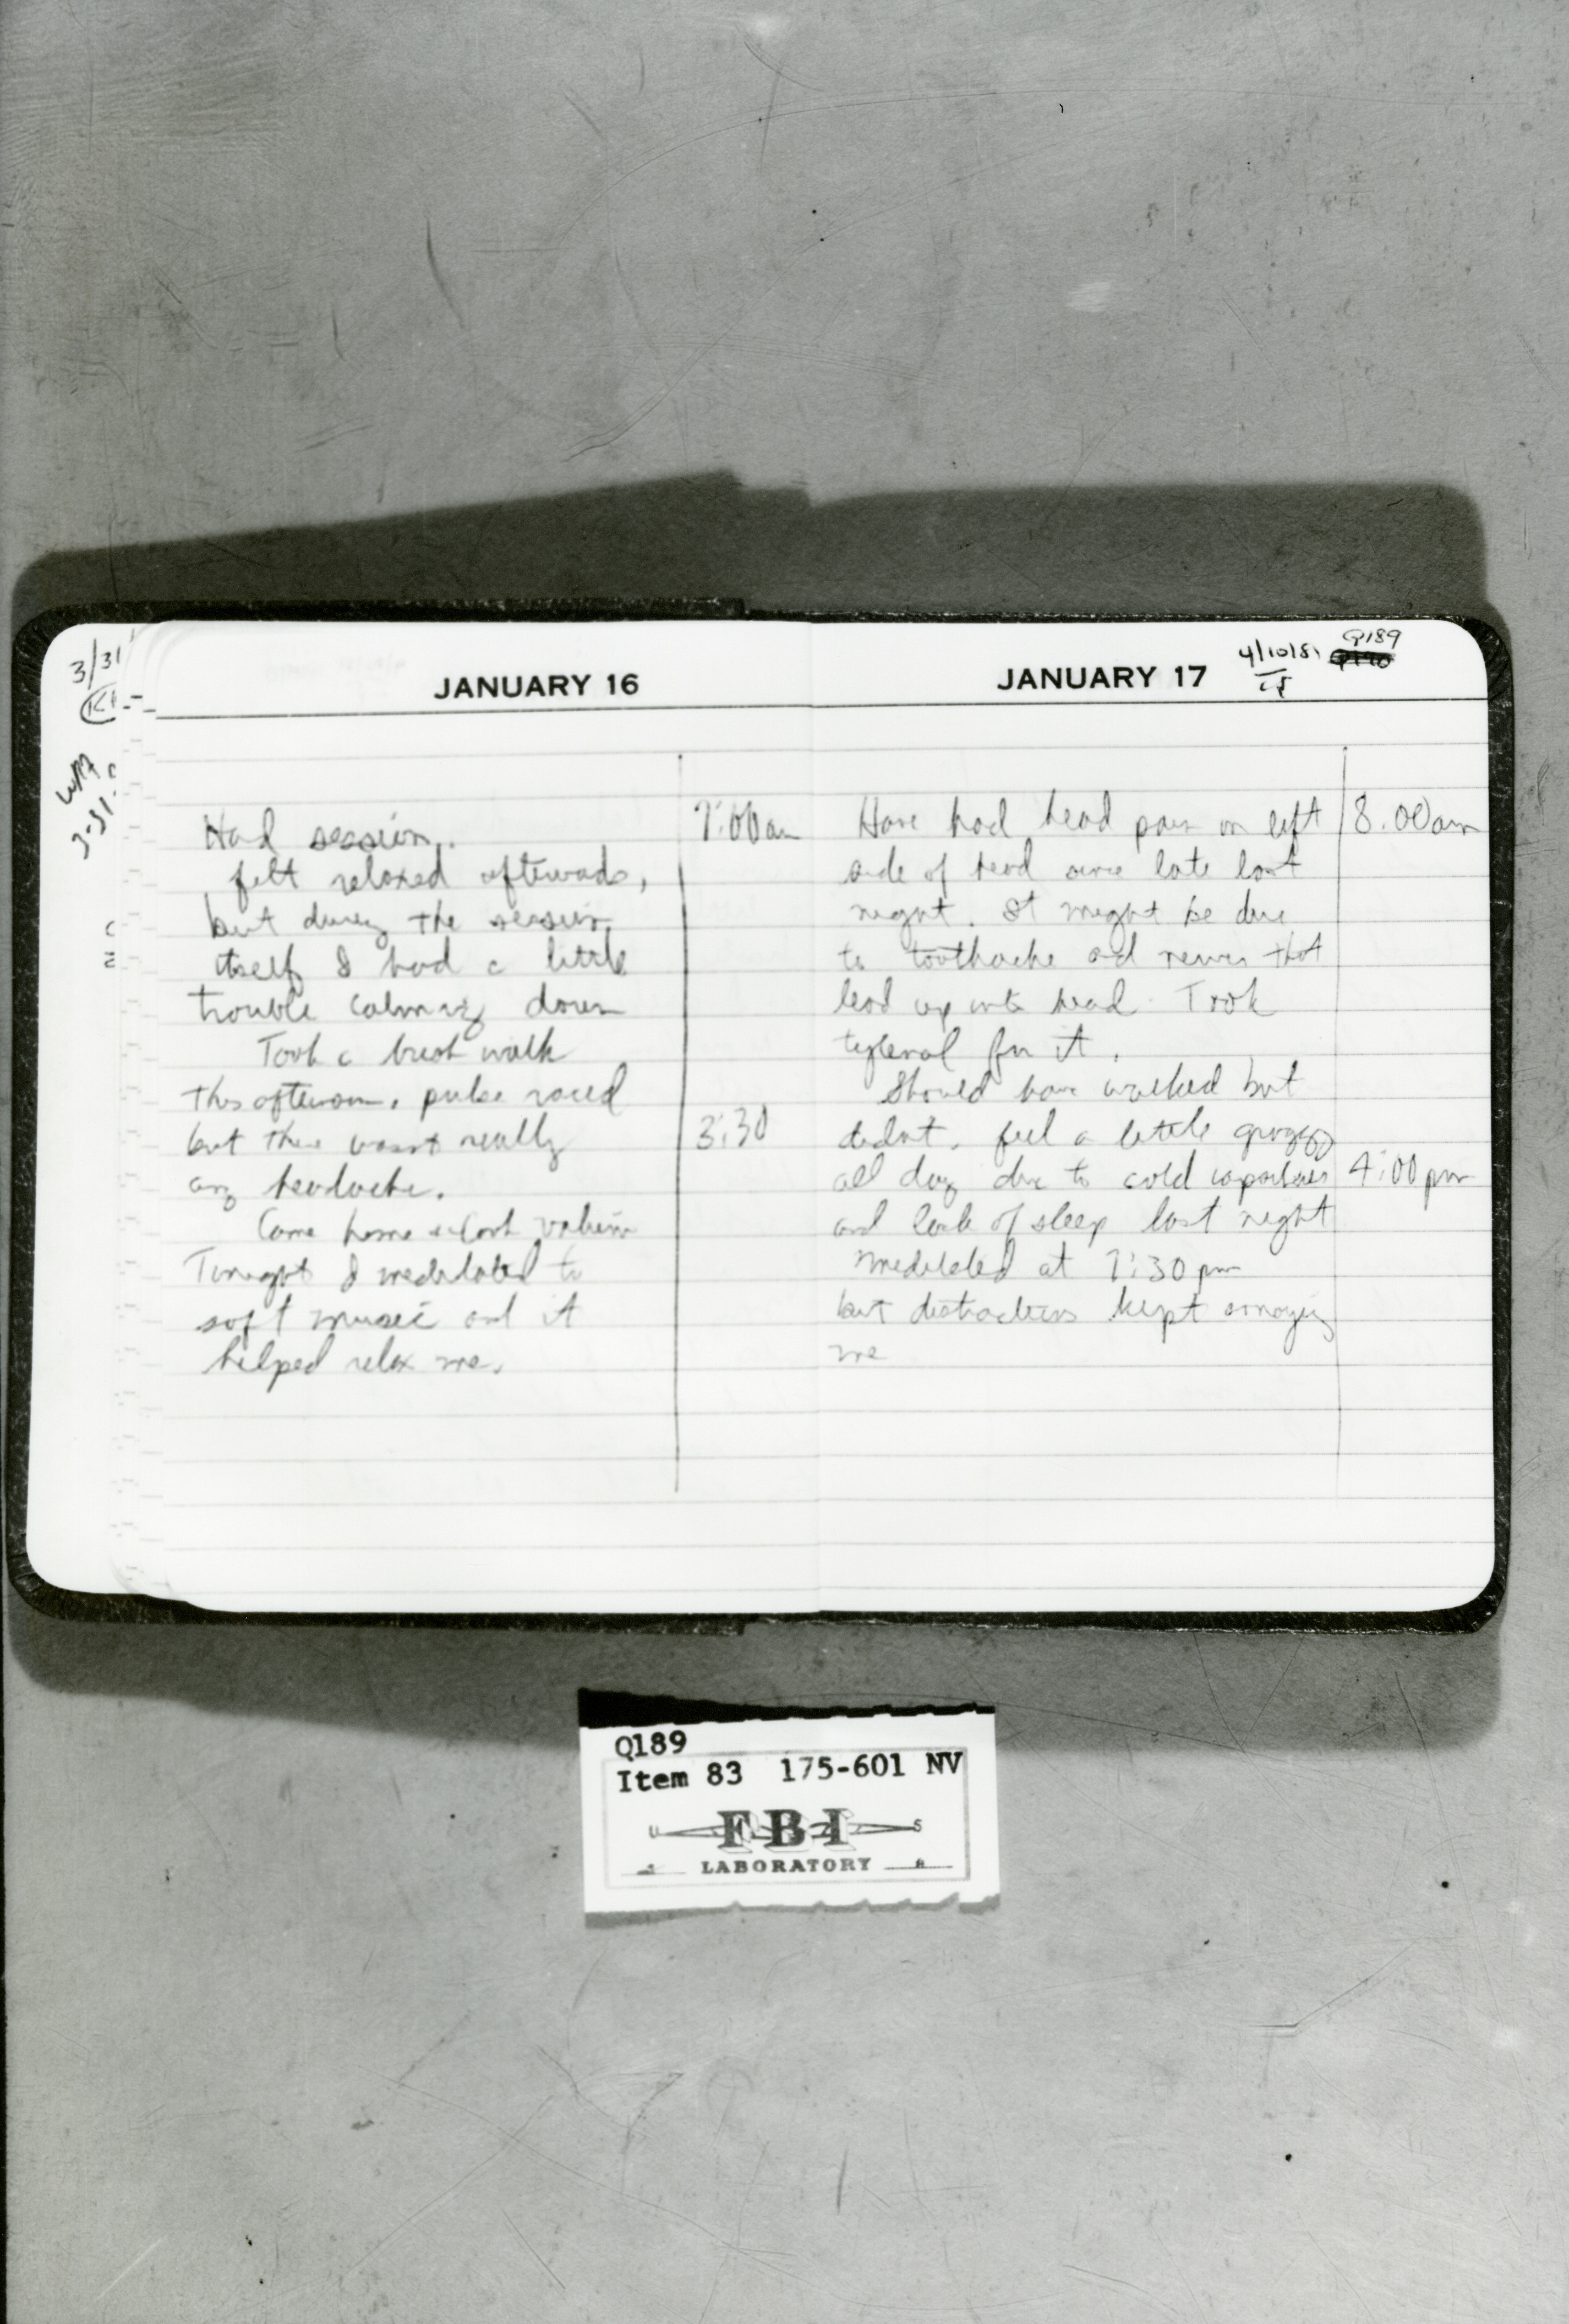 3/31
3-31
JANUARY 16
Had session. 7:00am
felt relaxed afterwads,
but during the session
itself I had a little
trouble calming down
Took a brisk walk
this afternoon. pulse raced
but there wasnt really 3:30
any headache.
Came home + took valium
Tonight I meditated to
soft music and it
helped relax me.
JANUARY 17
4/10/81 Q189
Have had head pain on left 8:00am
side of head since late last
night. It might be due
to toothache and nerves that
lead up into head. Took
tylenol for it.
Should have walked but
didnt. feel a little groggy
all day due to cold capsules 4:00 pm
and lack of sleep last night
meditated at 7:30 pm
but distractions kept annoying
me
Q189
Item 83 175-601 NV
U S
FBI
LABORATORY